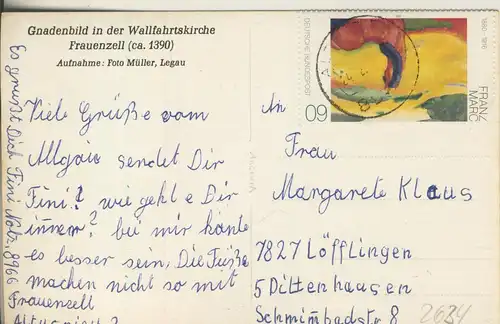 Gnadenbild in der Wallfahrtskirche
Frauenzell (ca. 1390)
Aufnahme: Foto Müller, Legau
Viele Grüße vom
Allgäu sendet Dir
Fini! wie geht e Dir
immer? bei mir könte
es besser sein. Die Füße
machen nicht so mit
Es grüßt Dich Fini Notz, 8966
Frauenzell
Altusried 2
DEUTSCHE BUNDESPOST
60
FRANZ
MARC
1880-1916
An
Frau
Margarete Klaus
7827 Löfflingen
5 Dittenhausen
Schwimbadstr 8
2634